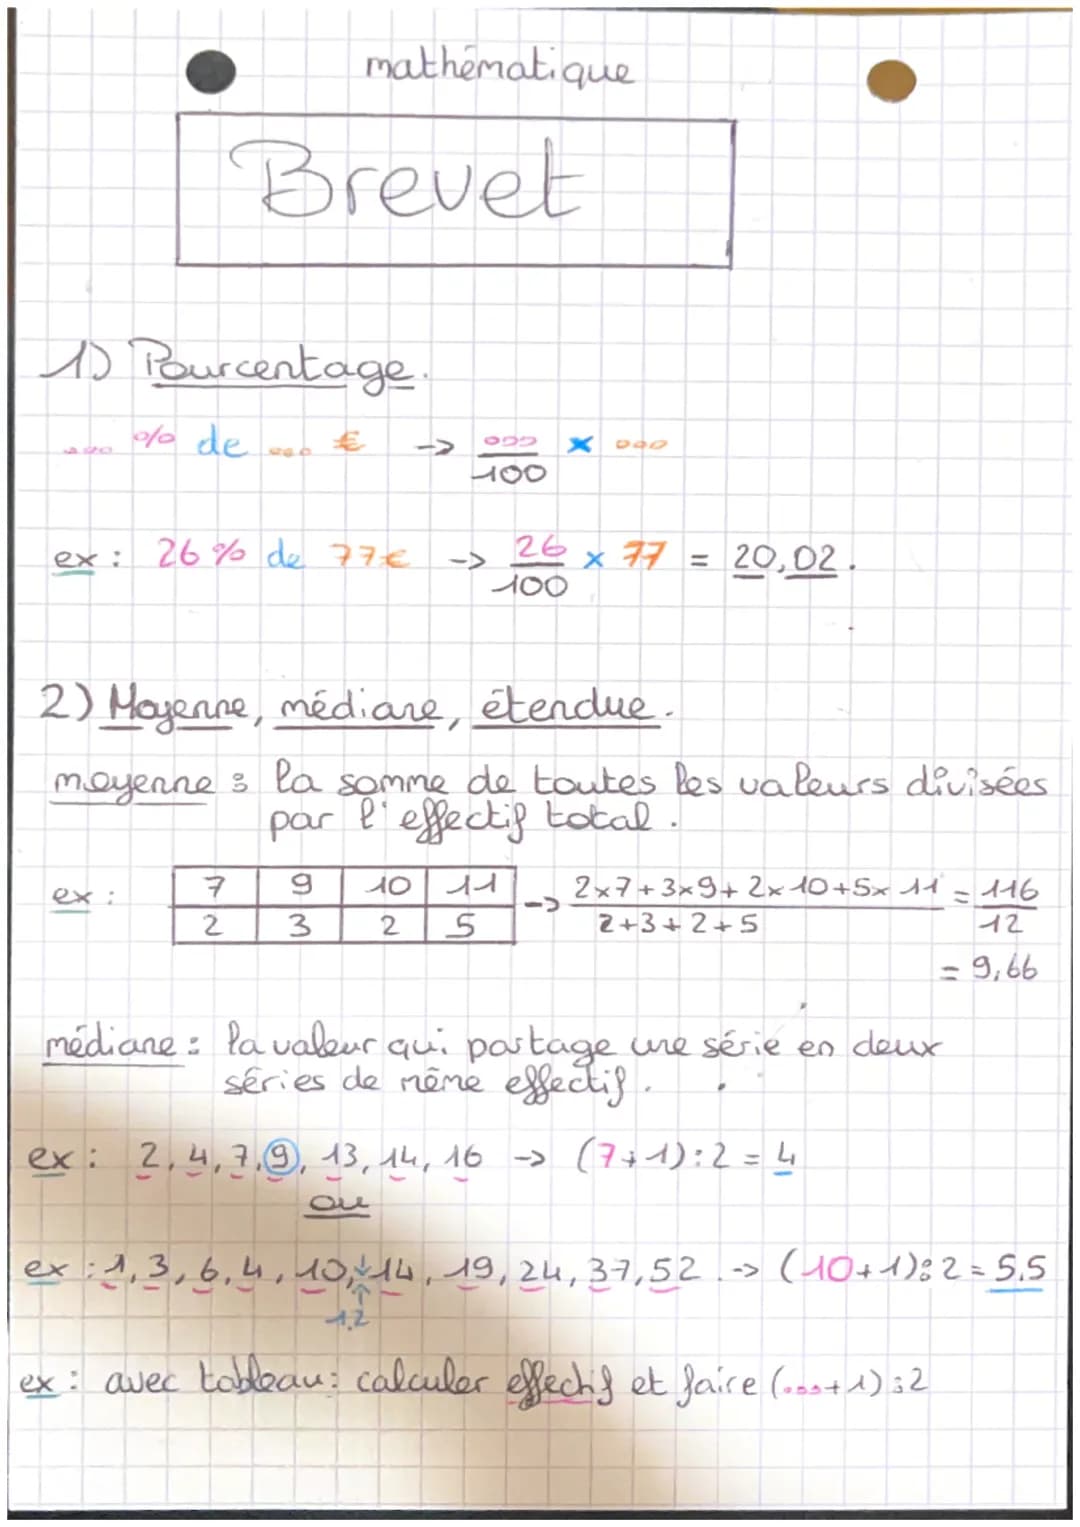 mathématique
Brevet
1) Pourcentage.
... % de ... € -> ...
100 × ...
ex : 26 % de 77€ -> 26
100 × 77 = 20,02.
2) Moyenne, médiane, étendue.
moyenne : la somme de toutes les valeurs divisées
par l'effectif total.
ex : 7 9 10 11 -> 2×7+3×9+2×10+5×11 = 116
2 3 2 5 2+3+2+5 12
= 9,66
médiane : la valeur qui partage une série en deux
séries de même effectif.
ex : 2, 4, 7, 9, 13, 14, 16 -> (7+1):2 = 4
ou
ex : 1, 3, 6, 4, 10, 14, 19, 24, 37, 52. -> (10+1):2 = 5,5
12
ex : avec tableau : calculer effectif et faire (...+1):2